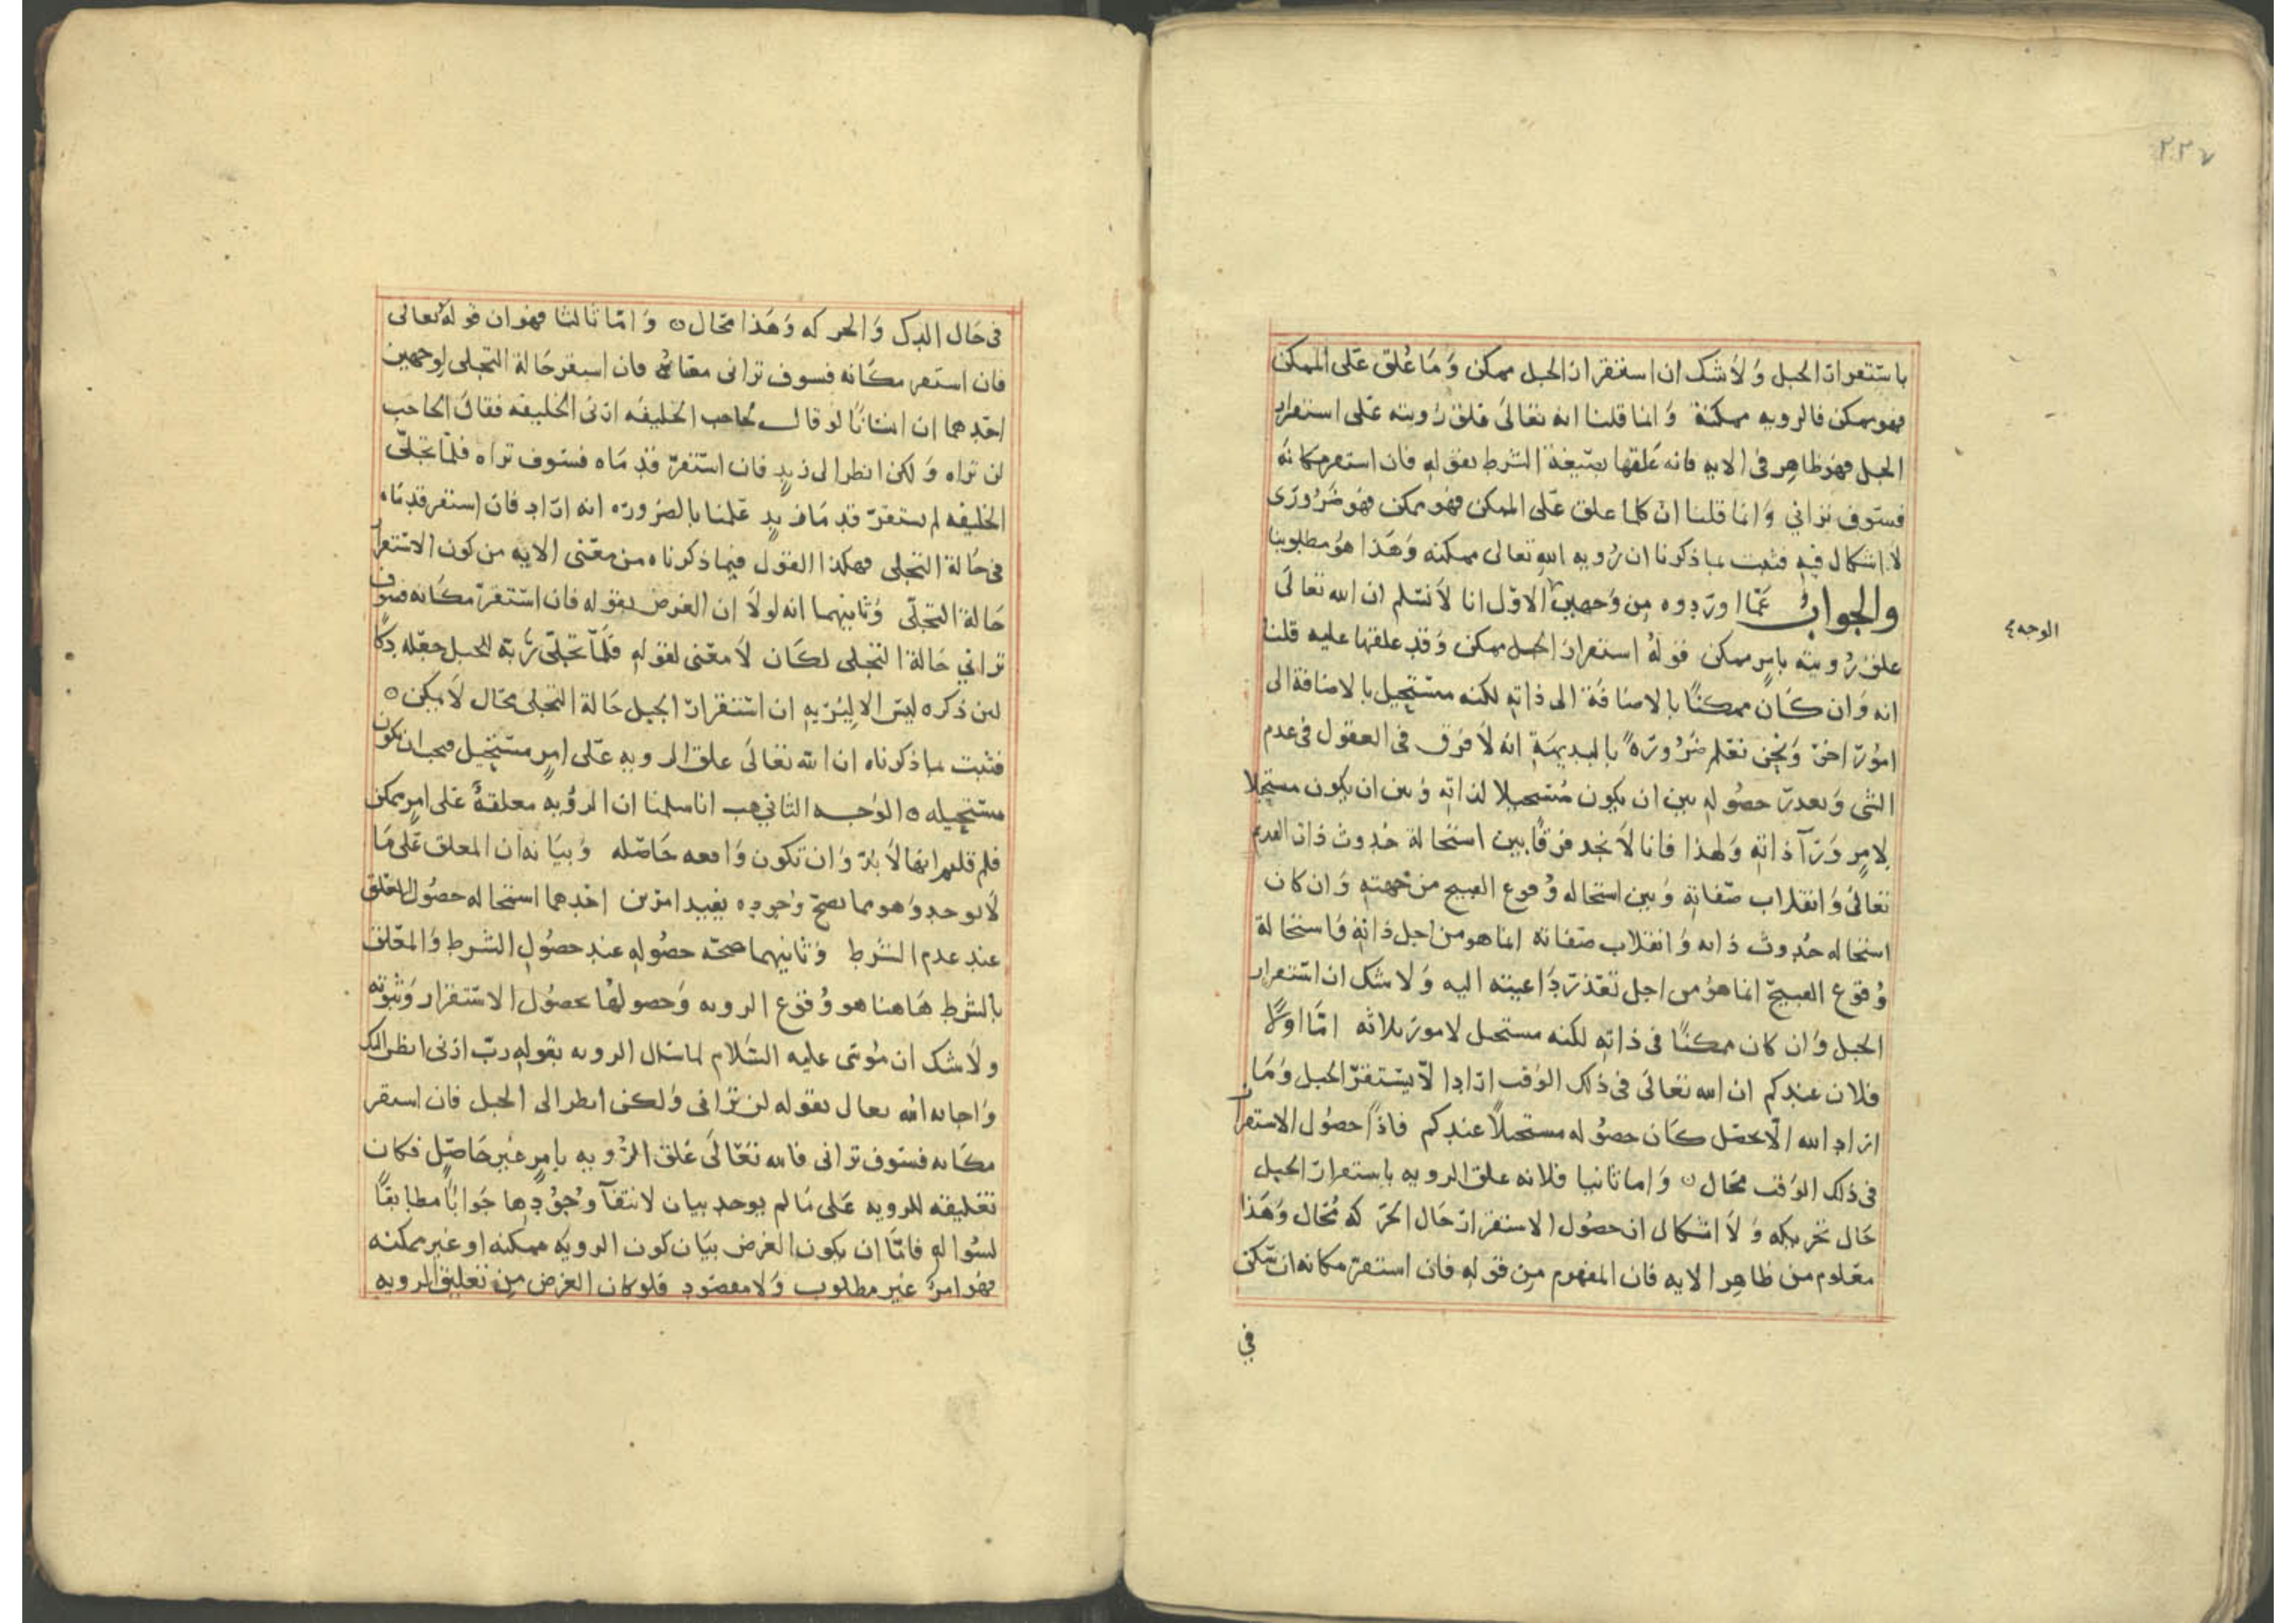 ٢٢٧
باستقرار الجبل ولا شك ان استقرار الجبل ممكن وما علق على الممكن
فهو ممكن فالرويه ممكنة وانما قلنا انه تعالى علق رويته على استقرار
الجبل فهو ظاهر فى الايه فانه علقها بصيغة الشرط بقوله فان استقر مكانه
فسوف تراني وانما قلنا ان كلما علق على الممكن فهو ممكن فهو ضرورى
لا اشكال فيه فثبت بما ذكرنا ان رويه الله تعالى ممكنه وهذا هو مطلوبنا
والجواب عما اوردوه من وجهين الاول انا لا نسلم ان الله تعالى
الوجه
علق رويته بامر ممكن قوله استقرار الجبل ممكن وقد علقها عليه قلنا
انه وان كان ممكنا بالاضافة الى ذاته لكنه مستحيل بالاضافة الى
امور اخر ونحن نعلم ضرورة بالبديهة انه لا فرق فى العقول فى عدم
الشى وتعذر حصوله بين ان يكون مستحيلا لذاته وبين ان يكون مستحيلا
لامر ورآ ذاته ولهذا فانا لا نجد فرقا بين استحالة حدوث ذات القديم
تعالى وانقلاب صفاته وبين استحاله وقوع القبيح من جهته وان كان
استحاله حدوث ذاته وانقلاب صفاته انما هو من اجل ذاته واستحالة
وقوع القبيح انما هو من اجل تعذر داعيته اليه ولا شك ان استقرار
الجبل وان كان ممكنا فى ذاته لكنه مستحيل لامور ثلاثه امّا اولا
فلان عندكم ان الله تعالى فى ذلك الوقت اراد الّا يستقرّ الجبل وما
اراد الله الّا يحصل كان حصوله مستحيلا عندكم فاذا حصول الاستقرار
فى ذلك الوقت محال ٥ واما ثانيا فلانه علق الرويه باستقرار الجبل
حال تحريكه ولا اشكال ان حصول الاستقرار حال الحركه محال وهذا
معلوم من ظاهر الايه فان المفهوم من قوله فان استقر مكانه ان تمكن
في
فى حال الدك والحركه وهذا محال ٥ وامّا ثالثا فهو ان قوله تعالى
فان استقر مكانه فسوف ترانى معناه فان استقر حالة التجلى لوجهين
احدهما ان انسانا لو قال لحاجب الخليفه ارنى الخليفه فقال الحاجب
لن تراه ولكن انظر الى زيد فان استقرّ قدماه فسوف تراه فلمّا تجلّى
الخليفه لم يستقرّ قدما زيد علمنا بالضروره انه اراد فان استقر قدماه
فى حالة التجلى فهكذا القول فيما ذكرناه من معنى الايه من كون الاستقرار
حالة التجلّى وثانيهما انه لولا ان الغرض بقوله فان استقرّ مكانه فسوف
تراني حالة التجلى لكان لا معنى لقوله فلمّا تجلّى ربّه للجبل جعله دكا
لان ذكره ليس الا ليريه ان استقرار الجبل حالة التجلى محال لا يمكن ٥
فثبت بما ذكرناه ان الله تعالى علق الرويه على امر مستحيل فيجب ان تكون
مستحيله ٥ الوجه الثاني هب انا سلمنا ان الرويه معلقة على امر ممكن
فلم قلتم انها لا بدّ وان تكون واقعه حاصله وبيانه ان المعلق على ما
لا يوجد وهو مما يصحّ وجوده يفيد امرين احدهما استحاله حصول المعلق
عند عدم الشرط وثانيهما صحه حصوله عند حصول الشرط والمعلق
بالشرط هاهنا هو وقوع الرويه وحصولها بحصول الاستقرار وثبوته
ولا شك ان موسى عليه السلام لما سال الرويه بقوله ربّ ارنى انظر اليك
واجابه الله تعالى بقوله لن تراني ولكن انظر الى الجبل فان استقر
مكانه فسوف ترانى فالله تعالى علق الرويه بامر غير حاصل فكان
تعليقه للرويه على ما لم يوجد بيان لانتفآ وجودها جوابا مطابقا
لسواله فامّا ان يكون الغرض بيان كون الرويه ممكنه او غير ممكنه
فهو امر غير مطلوب ولا مقصود فلو كان الغرض من تعليق الرويه